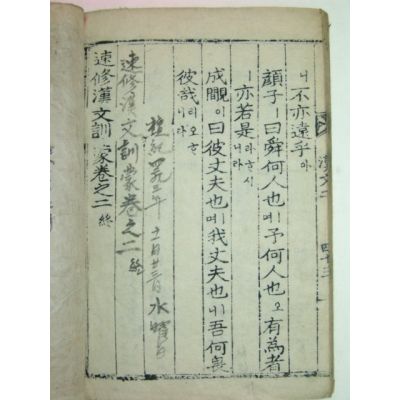 漢文二 四十三
니不亦遠乎아
顔子ㅣ曰舜何人也ㅣ며予何人也오有爲者
ㅣ亦若是라하시니라
成覵이曰彼丈夫也ㅣ며我丈夫也ㅣ니吾何畏
彼哉리오하니라
檀紀 三年 十一月廿三日 水曜日
速修漢文訓蒙卷之二 終
速修漢文訓蒙卷之二 終